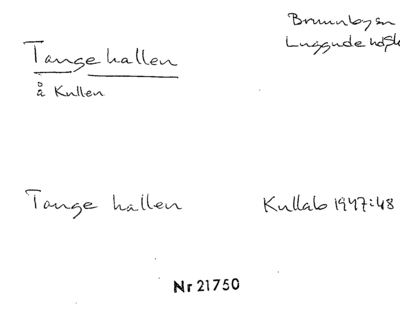 Brunnby sn
Luggude
Tangehallen
å Kullen
Tange hallen
Kullab 1947:48
Nr 21750